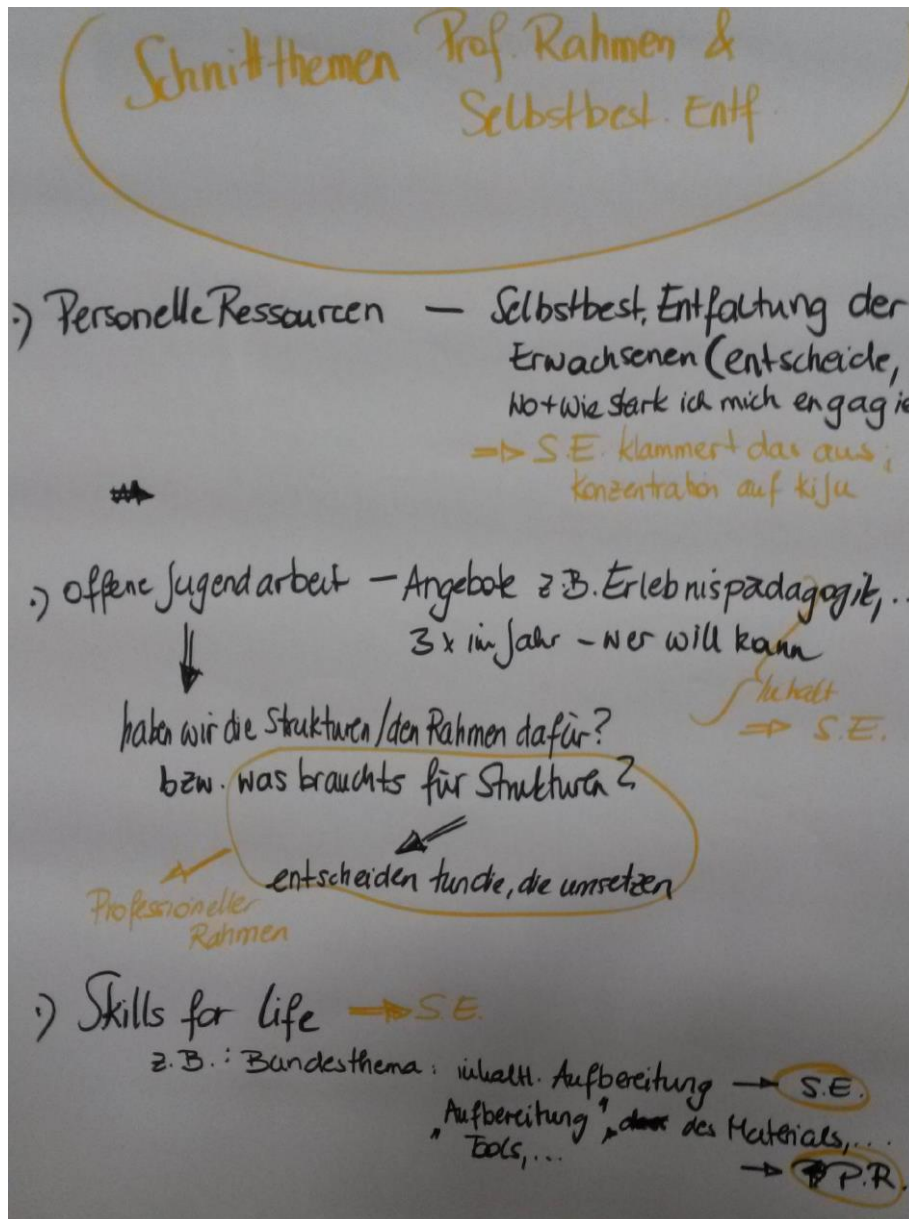 Schnittthemen Prof. Rahmen &
Selbstbest. Entf.
·) Personelle Ressourcen — Selbstbest. Entfaltung der
Erwachsenen (entscheide,
wo + wie stark ich mich engagie
⇒ S.E. klammert das aus;
Konzentration auf kiju
·) Offene Jugendarbeit – Angebote z.B. Erlebnispädagogik, ..
3x im Jahr – wer will kann
Inhalt
⇒ S.E.
haben wir die Strukturen/den Rahmen dafür?
bzw. was brauchts für Strukturen?
entscheiden tun die, die umsetzen
Professioneller
Rahmen
·) Skills for life ⇒ S.E.
z.B.: Bundesthema: inhaltl. Aufbereitung → S.E.
"Aufbereitung", des Materials,...
Tools,...
→ P.R.